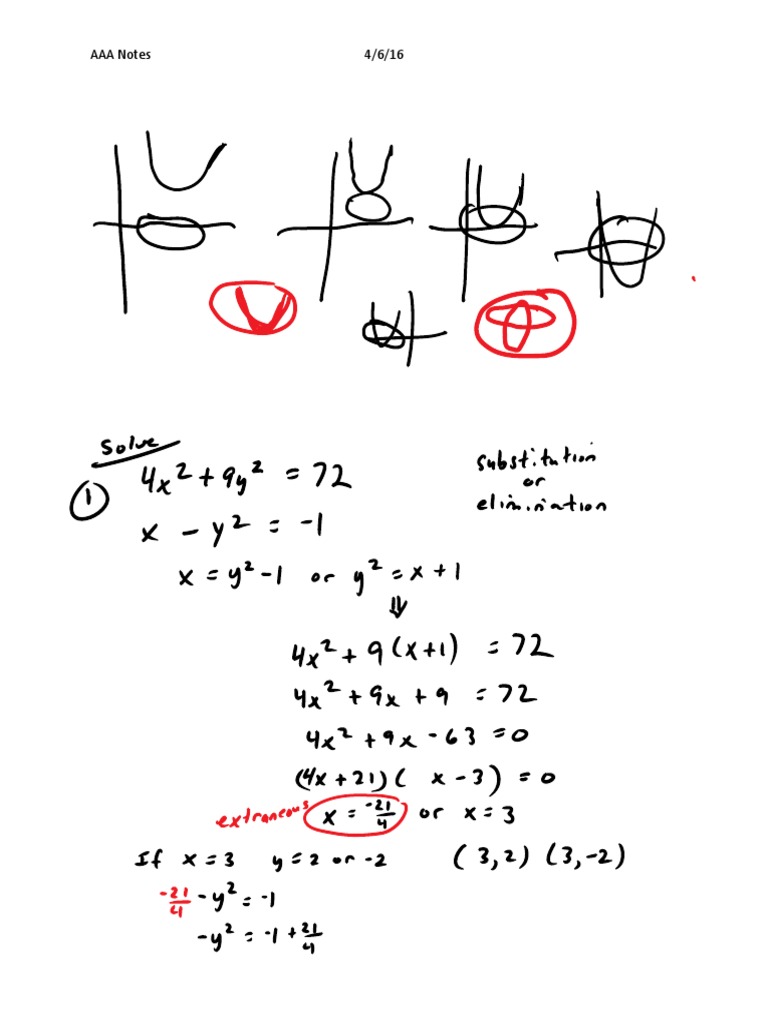 AAA Notes 4/6/16
Solve
① 4x² + 9y² = 72
substitution
or
elimination
x - y² = -1
x = y² - 1 or y² = x + 1
⇓
4x² + 9(x+1) = 72
4x² + 9x + 9 = 72
4x² + 9x - 63 = 0
(4x + 21)( x - 3) = 0
extraneous x = -21/4 or x = 3
If x = 3 y = 2 or -2 (3,2) (3,-2)
-21/4 - y² = -1
-y² = -1 + 21/4